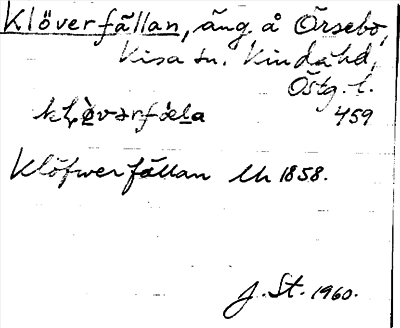 Klöverfällan, äng å Örsebo,
Kisa sn. Kinda hd,
Östg. l.
459
Klöfwerfällan Lh 1858.
J. St. 1960.